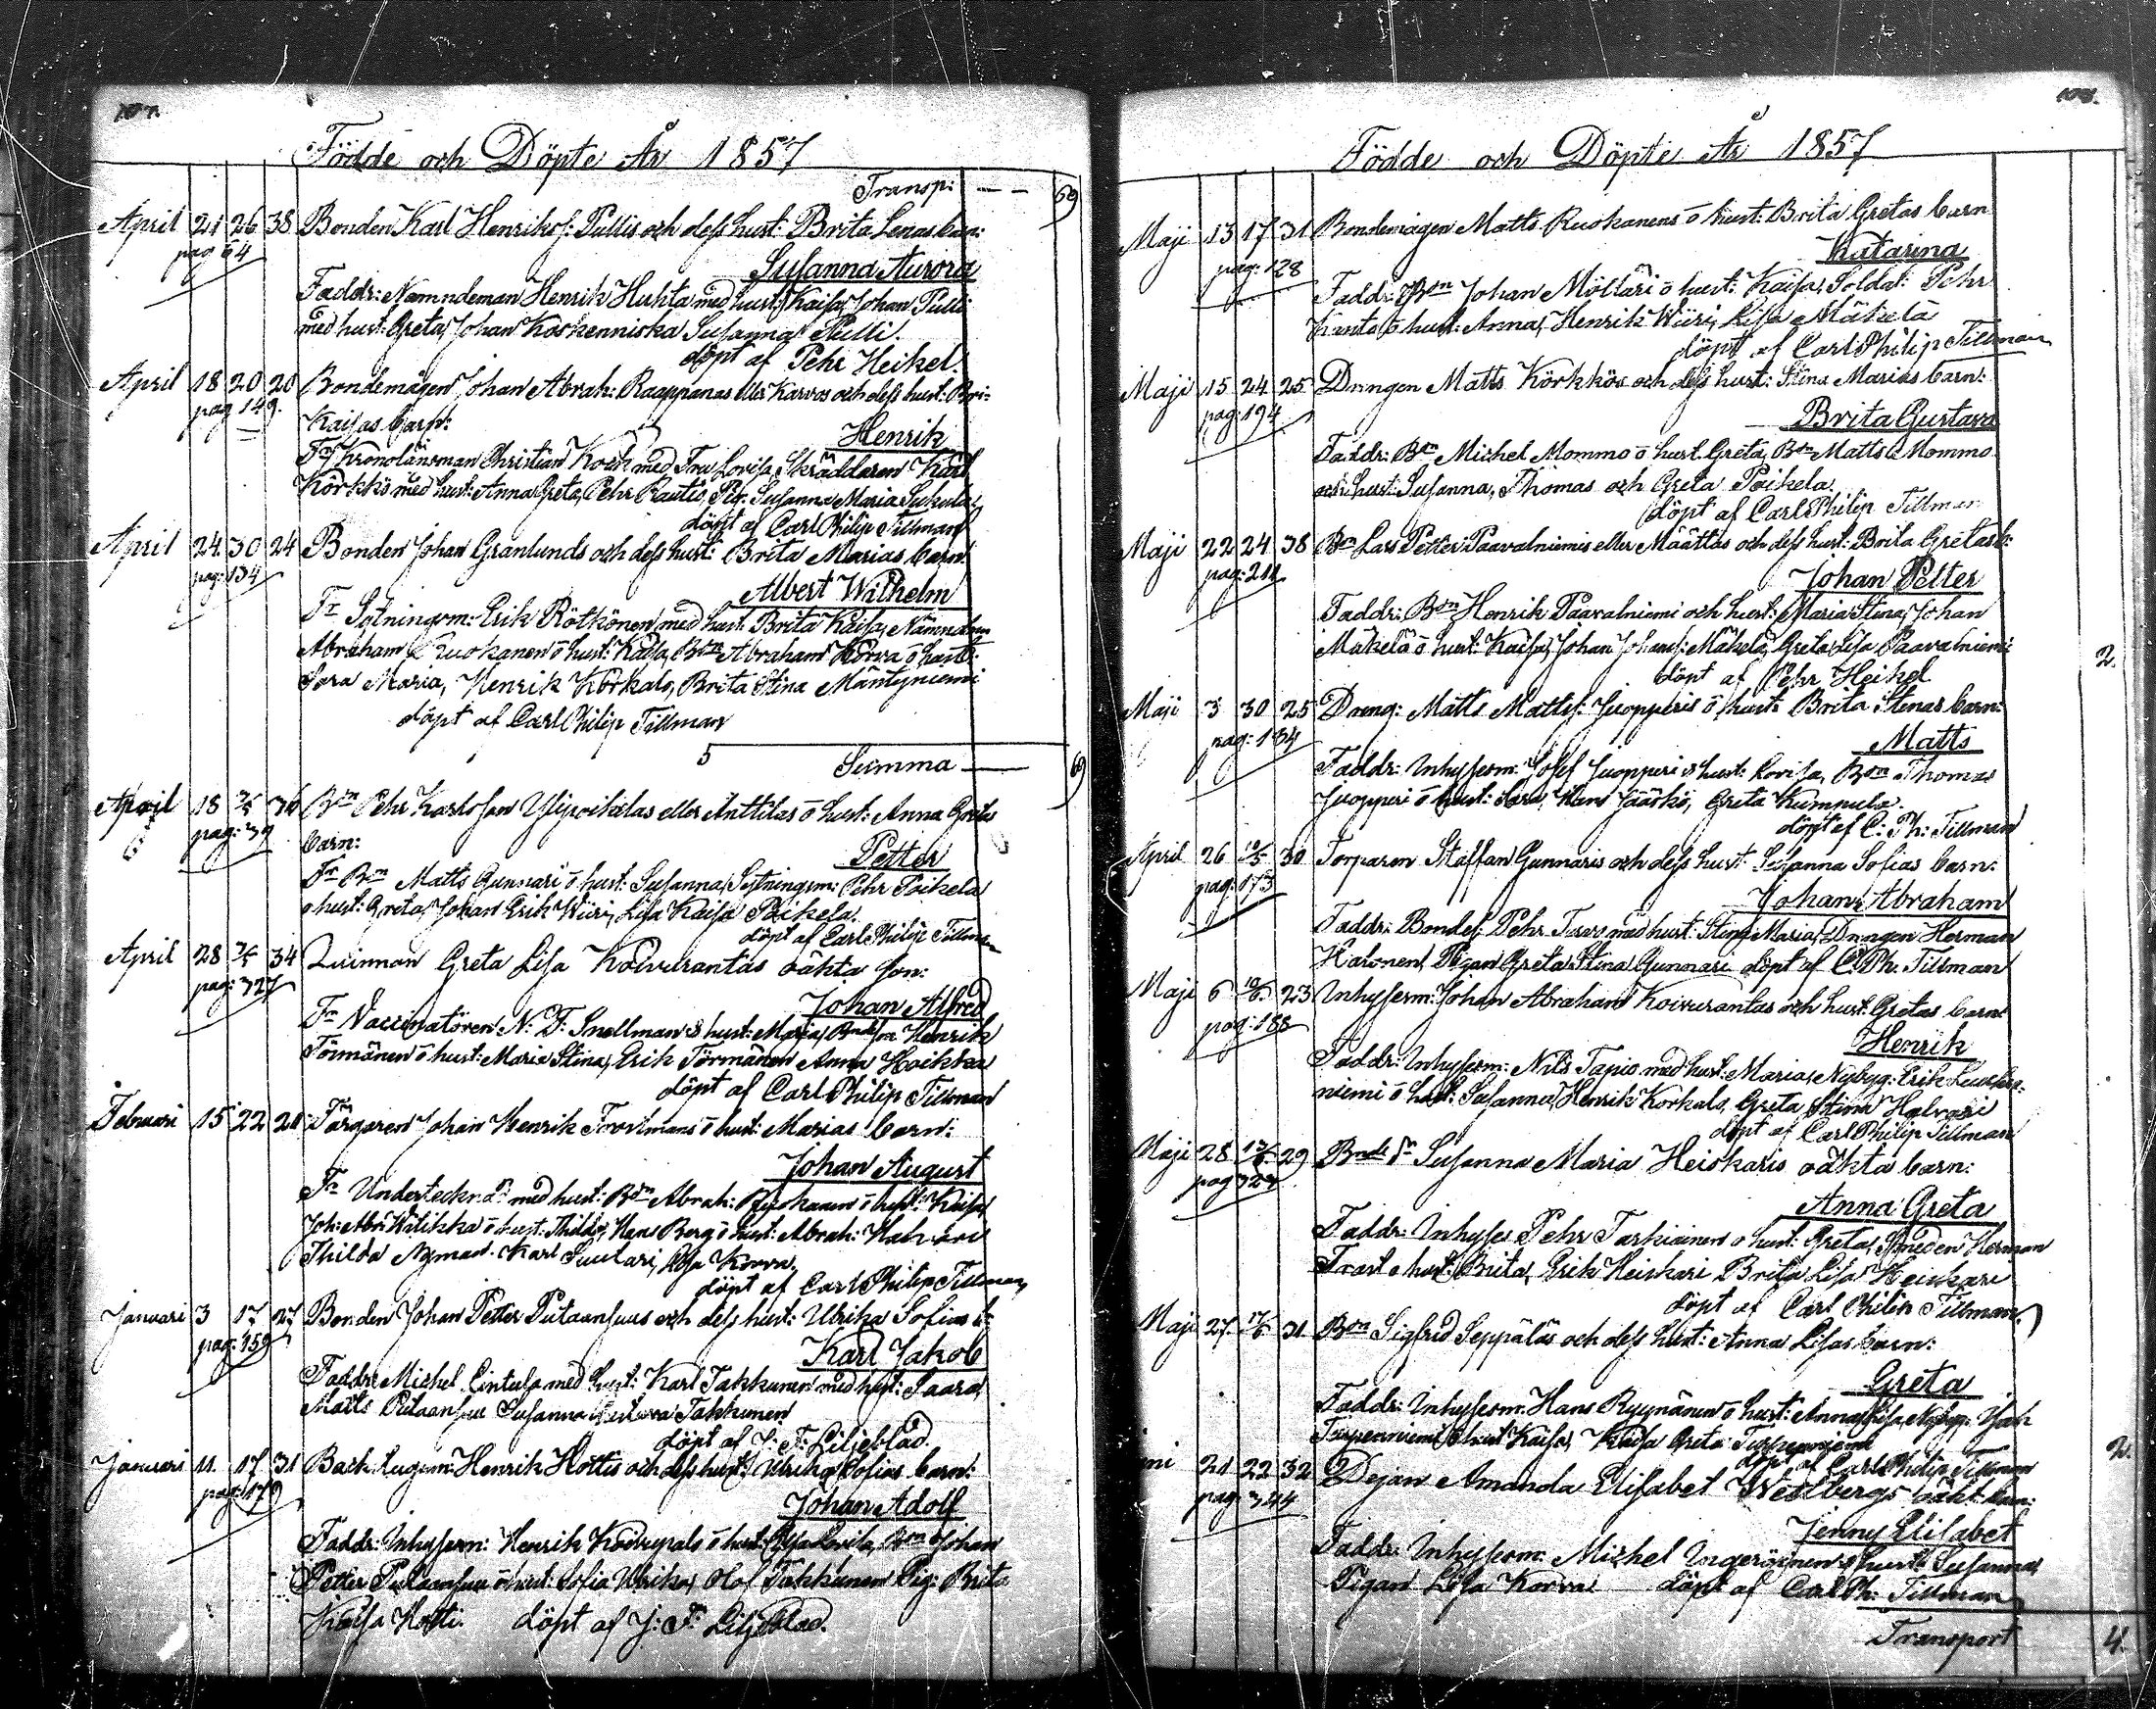 Födde och Döpte År 1857
Transp: — — 69
April 21 26 38 Bonden Karl Henrikss: Pullis och dess hust: Brita Lenas barn:
pag 64
Susanna Aurora
Faddr: Nämndeman Henrik Huhta med hust: Kaisa, Johan Pulli
med hust: Greta, Johan Koskenniska Susanna Pulli.
döpt af Pehr Heikel.
April 18 20 20 Bondemågen Johan Abrah: Raappanas eller Karvos och dess hust: Bri-
pag 149.
Kaisas barn:
Henrik
Fr Kronolänsman Christian Kock med Fru Lovisa, Skräddaren Karl
Körkkö med hust: Anna Greta, Pehr Rautio, Pig. Susanna Maria
döpt af Carl Philip Tillman
April 24 30 24 Bonden Johan Granlunds och dess hust: Brita Marias barn:
pag: 134
Albert Wilhelm
Fr Sytningsm: Erik Rötkönen med hust: Brita Kaisa, Nämndem
Abraham Ruokanen o hust: Kaisa, Bdn Abraham Korva o hust:
Sara Maria, Henrik Korkalo, Brita Stina Mäntyniemi
döpt af Carl Philip Tillman
5 Summa — 69
April 18 3/5 36 Bdn Pehr Karlsson Ylipoikelas eller Anttilas o hust: Anna Gretas
pag: 39
barn:
Petter
Fr Bdn Matts Gunnari o hust: Susanna, Sytningsm: Pehr Poikela
o hust: Greta, Johan Erik Wiiri, Lisa Kaisa Poikela.
döpt af Carl Philip Tillman
April 28 3/5 34 Qvinnan Greta Lisa Koivurantas oäkta son:
pag: 327
Johan Alfred
Fr Vaccinatören N: F: Snellman o hust: Maria, Henrik
Törmänen o hust: Maria Stina, Erik Törmänen Anna Hoikka
döpt af Carl Philip Tillman
Februari 15 22 20 Färgaren Johan Henrik o hust: Marias barn:
Johan August
Fr Underteckn:d med hust: Bdn Abrah: Ruokanen o hust: Kaisa
Joh: Abr: o hust: Thilda, Hans Berg o hust: Abrah: Halvari
Thilda Nyman. Karl Suutari, Korva,
döpt af Carl Philip Tillman
Januari 3 17 27 Bonden Johan Petter Putaansuus och dess hust: Ulrika Sofias b:
pag: 159
Karl Jakob
Faddr: Michel Lintula med hust: Karl Takkunen med hust: Saara,
Matts Putaansuu Susanna Gustava Takkunen
döpt af J: F: Liljeblad.
Januari 11 17 31 Backstugum: Henrik Hottis och dess hust: Ulrika Sofias barn:
pag: 179
Johan Adolf
Faddr: Inhysesm: Henrik Koivupalo o hust: Lovisa, Bdn Johan
Petter Putaansuu o hust: Sofia Ulrika, Olof Takkunen Pig: Brita
Kaisa Hotti. döpt af J: F: Liljeblad.
Födde och Döpte År 1857
Maji 13 17 31 Bondemågen Matts Ruokanens o hust: Brita Gretas barn
pag: 128
Katarina
Faddr: Bdn Johan Möllari o hust: Kaisa, Soldat: Pehr
Kunta o hust: Anna, Henrik Wiiri, Lisa Mäkelä
döpt af Carl Philip Tillman
Maji 15 24 25 Drängen Matts Körkkös och dess hust: Stina Marias barn:
pag: 194
Brita Gustava
Faddr: Bdn Michel Mommo o hust. Greta, Bdn Matts Mommo
och hust: Susanna, Thomas och Greta Poikela.
döpt af Carl Philip Tillman
Maji 22 24 38 Bdn Lars Petter Paavalniemis eller Määttäs och dess hust: Brita Gretas b:
pag: 211
Johan Petter
Faddr: Bdn Henrik Paavalniemi och hust: Maria Stina, Johan
Mäkelä o hust: Kaisa, Johan Johanss: Mäkelä, Greta Lisa Paavalniemi
döpt af Pehr Heikel
2.
Maji 3 30 25 Dreng: Matts Mattss: Juopperis o hust: Brita Stinas barn:
pag: 184
Matts
Faddr: Inhysesm: Josef Juopperi o hust: Lovisa, Bdn Thomas
Juopperi o hust: Sara, Hans Jääskö, Greta Kumpula.
döpt af C: Ph: Tillman
April 26 10/5 30 Torparen Staffan Gunnaris och dess hust: Susanna Sofias barn:
pag: 173
Johan Abraham
Faddr: Bondes: Pehr Tervo med hust: Stina Maria, Drängen Herman
Halonen, Pigan Greta Stina Gunnari döpt af C Ph. Tillman
Maji 6 10/6 23 Inhysesm: Johan Abraham Koivurantas och hust: Gretas barn:
pag: 188
Henrik
Faddr: Inhysesm: Nils Tapio med hust: Maria, Nybyg: Erik
niemi o hust: Susanna, Henrik Korkalo, Greta Stina Halvari
döpt af Carl Philip Tillman
Maji 28 13/6 29 Susanna Maria Heiskaris oäkta barn:
Anna Greta
Faddr: Inhyses Pehr Tarkiainen o hust: Greta, Smeden Herman
Frost o hust: Brita, Erik Heiskari Brita Lisa Heiskari
döpt af Carl Philip Tillman
Maji 27 17/6 31 Bdn Sigfrid Seppäläs och dess hust: Anna Lisas barn:
Greta
Faddr: Inhysesm: Hans Ryynänen o hust: Anna Lisa, Nybyg: Isak
Turpeenniemi o hust: Kaisa, Kaisa Greta Turpeenniemi
döpt af Carl Philip Tillman
2.
ni 21 22 32 Dejan Amanda Elisabet Westbergs oäkt barn:
pag: 344
Jenny Elisabet
Faddr: Inhysesm: Michel Ingeröinen o hust: Susanna,
Pigan Lisa Korva döpt af Carl Ph: Tillman
Transport 4.